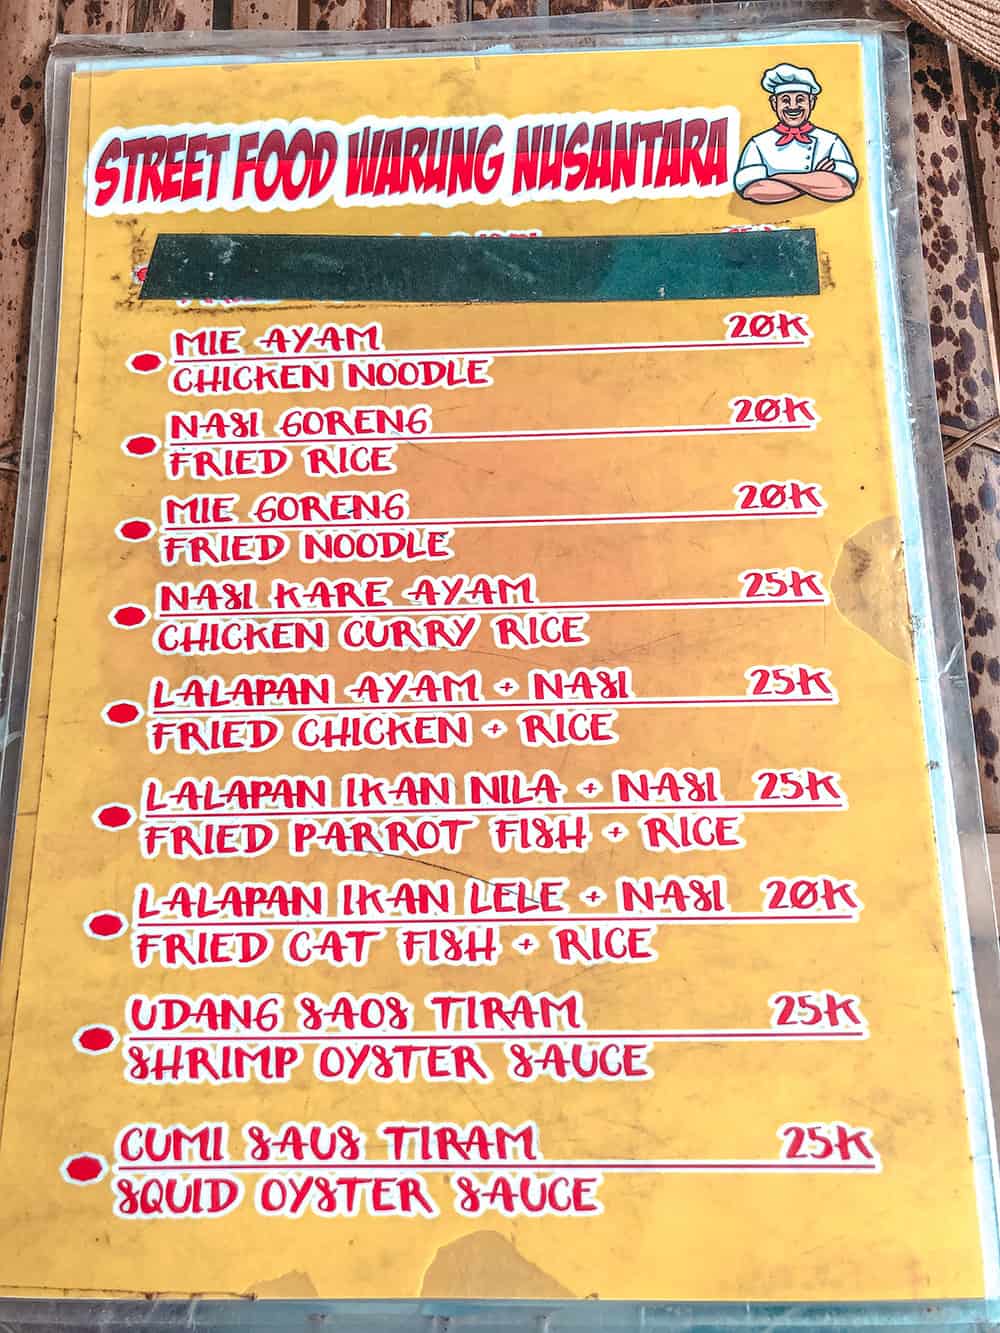 STREET FOOD WARUNG NUSANTARA
MIE AYAM 20K
CHICKEN NOODLE
NASI GORENG 20K
FRIED RICE
MIE GORENG 20K
FRIED NOODLE
NASI KARE AYAM 25K
CHICKEN CURRY RICE
LALAPAN AYAM + NASI 25K
FRIED CHICKEN + RICE
LALAPAN IKAN NILA + NASI 25K
FRIED PARROT FISH + RICE
LALAPAN IKAN LELE + NASI 20K
FRIED CAT FISH + RICE
UDANG SAOS TIRAM 25K
SHRIMP OYSTER SAUCE
CUMI SAUS TIRAM 25K
SQUID OYSTER SAUCE